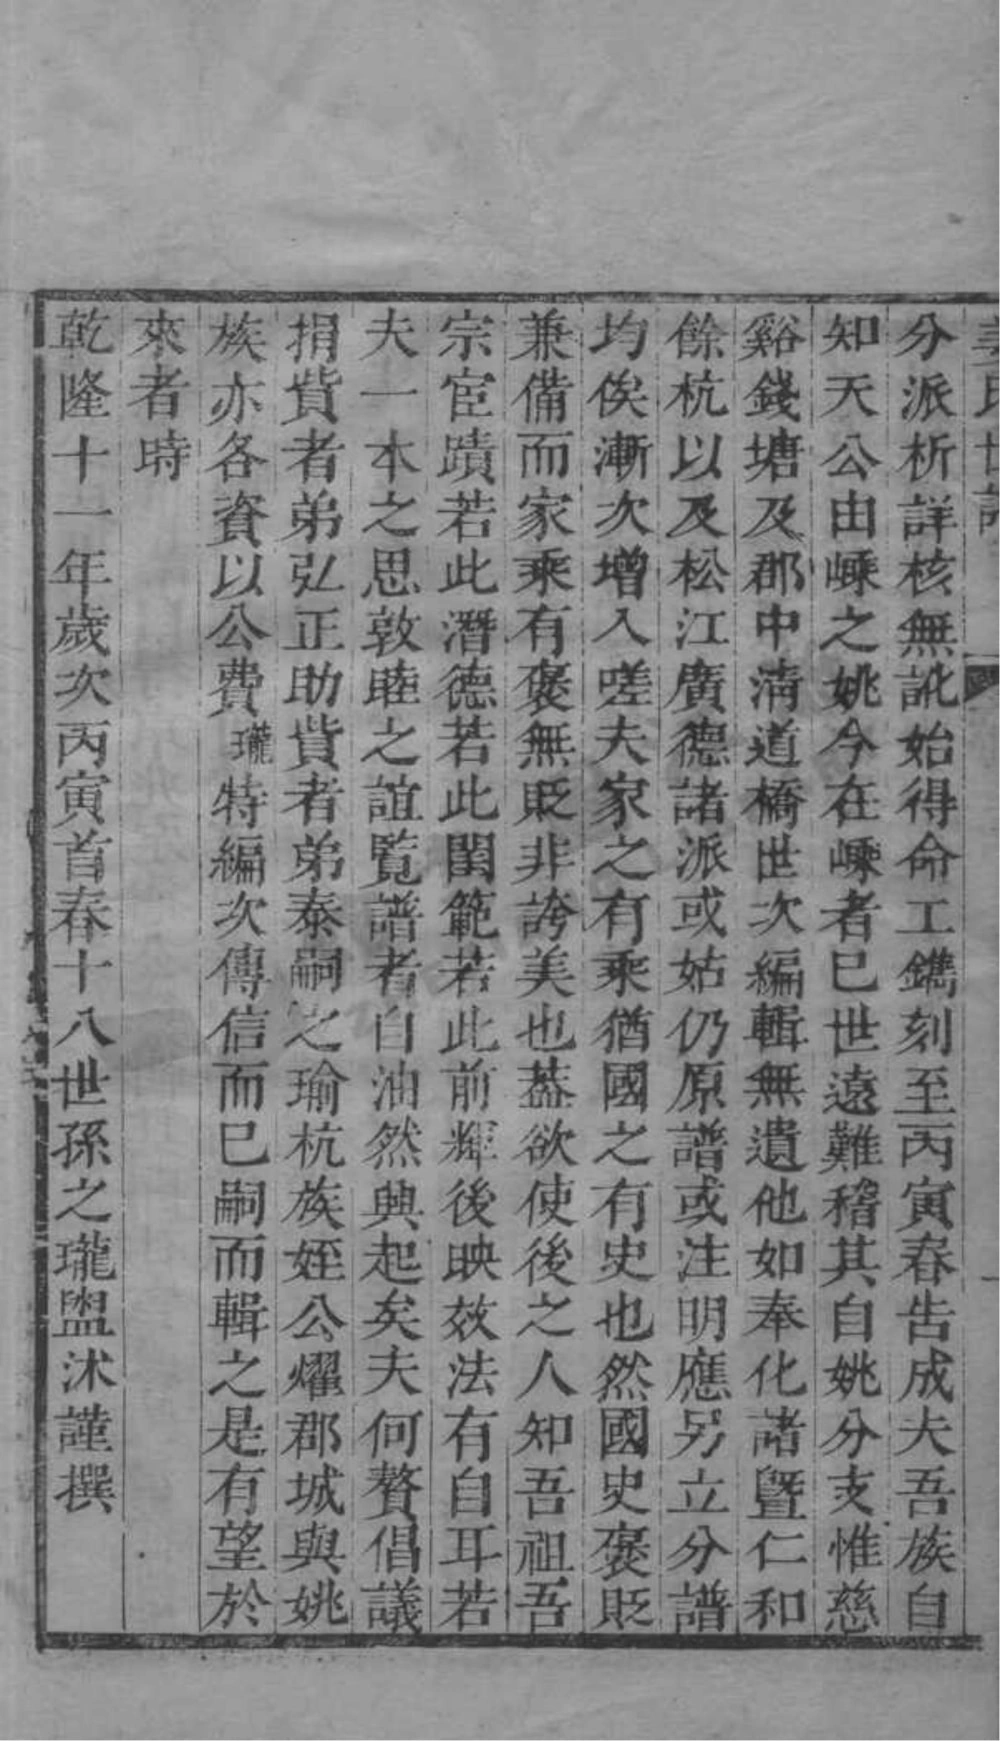 氏世譜
分派析詳核無訛始得命工鐫刻至丙寅春告成夫吾族自
知天公由嵊之姚今在嵊者已世遠難稽其自姚分支惟慈
谿錢塘及郡中清道橋世次編輯無遺他如奉化諸暨仁和
餘杭以及松江廣德諸派或姑仍原譜或注明應另立分譜
均俟漸次增入嗟夫家之有乘猶國之有史也然國史褒貶
兼備而家乘有褒無貶非誇美也葢欲使後之人知吾祖吾
宗宦蹟若此潛德若此閨範若此前輝後映效法有自耳若
夫一本之思敦睦之誼覧譜者自油然興起矣夫何贅倡議
捐貲者弟弘正助貲者弟泰嗣之瑜杭族姪公燿郡城與姚
族亦各資以公費瓏特編次傳信而已嗣而輯之是有望於
來者時
乾隆十一年歲次丙寅首春十八世孫之瓏盥沐謹撰